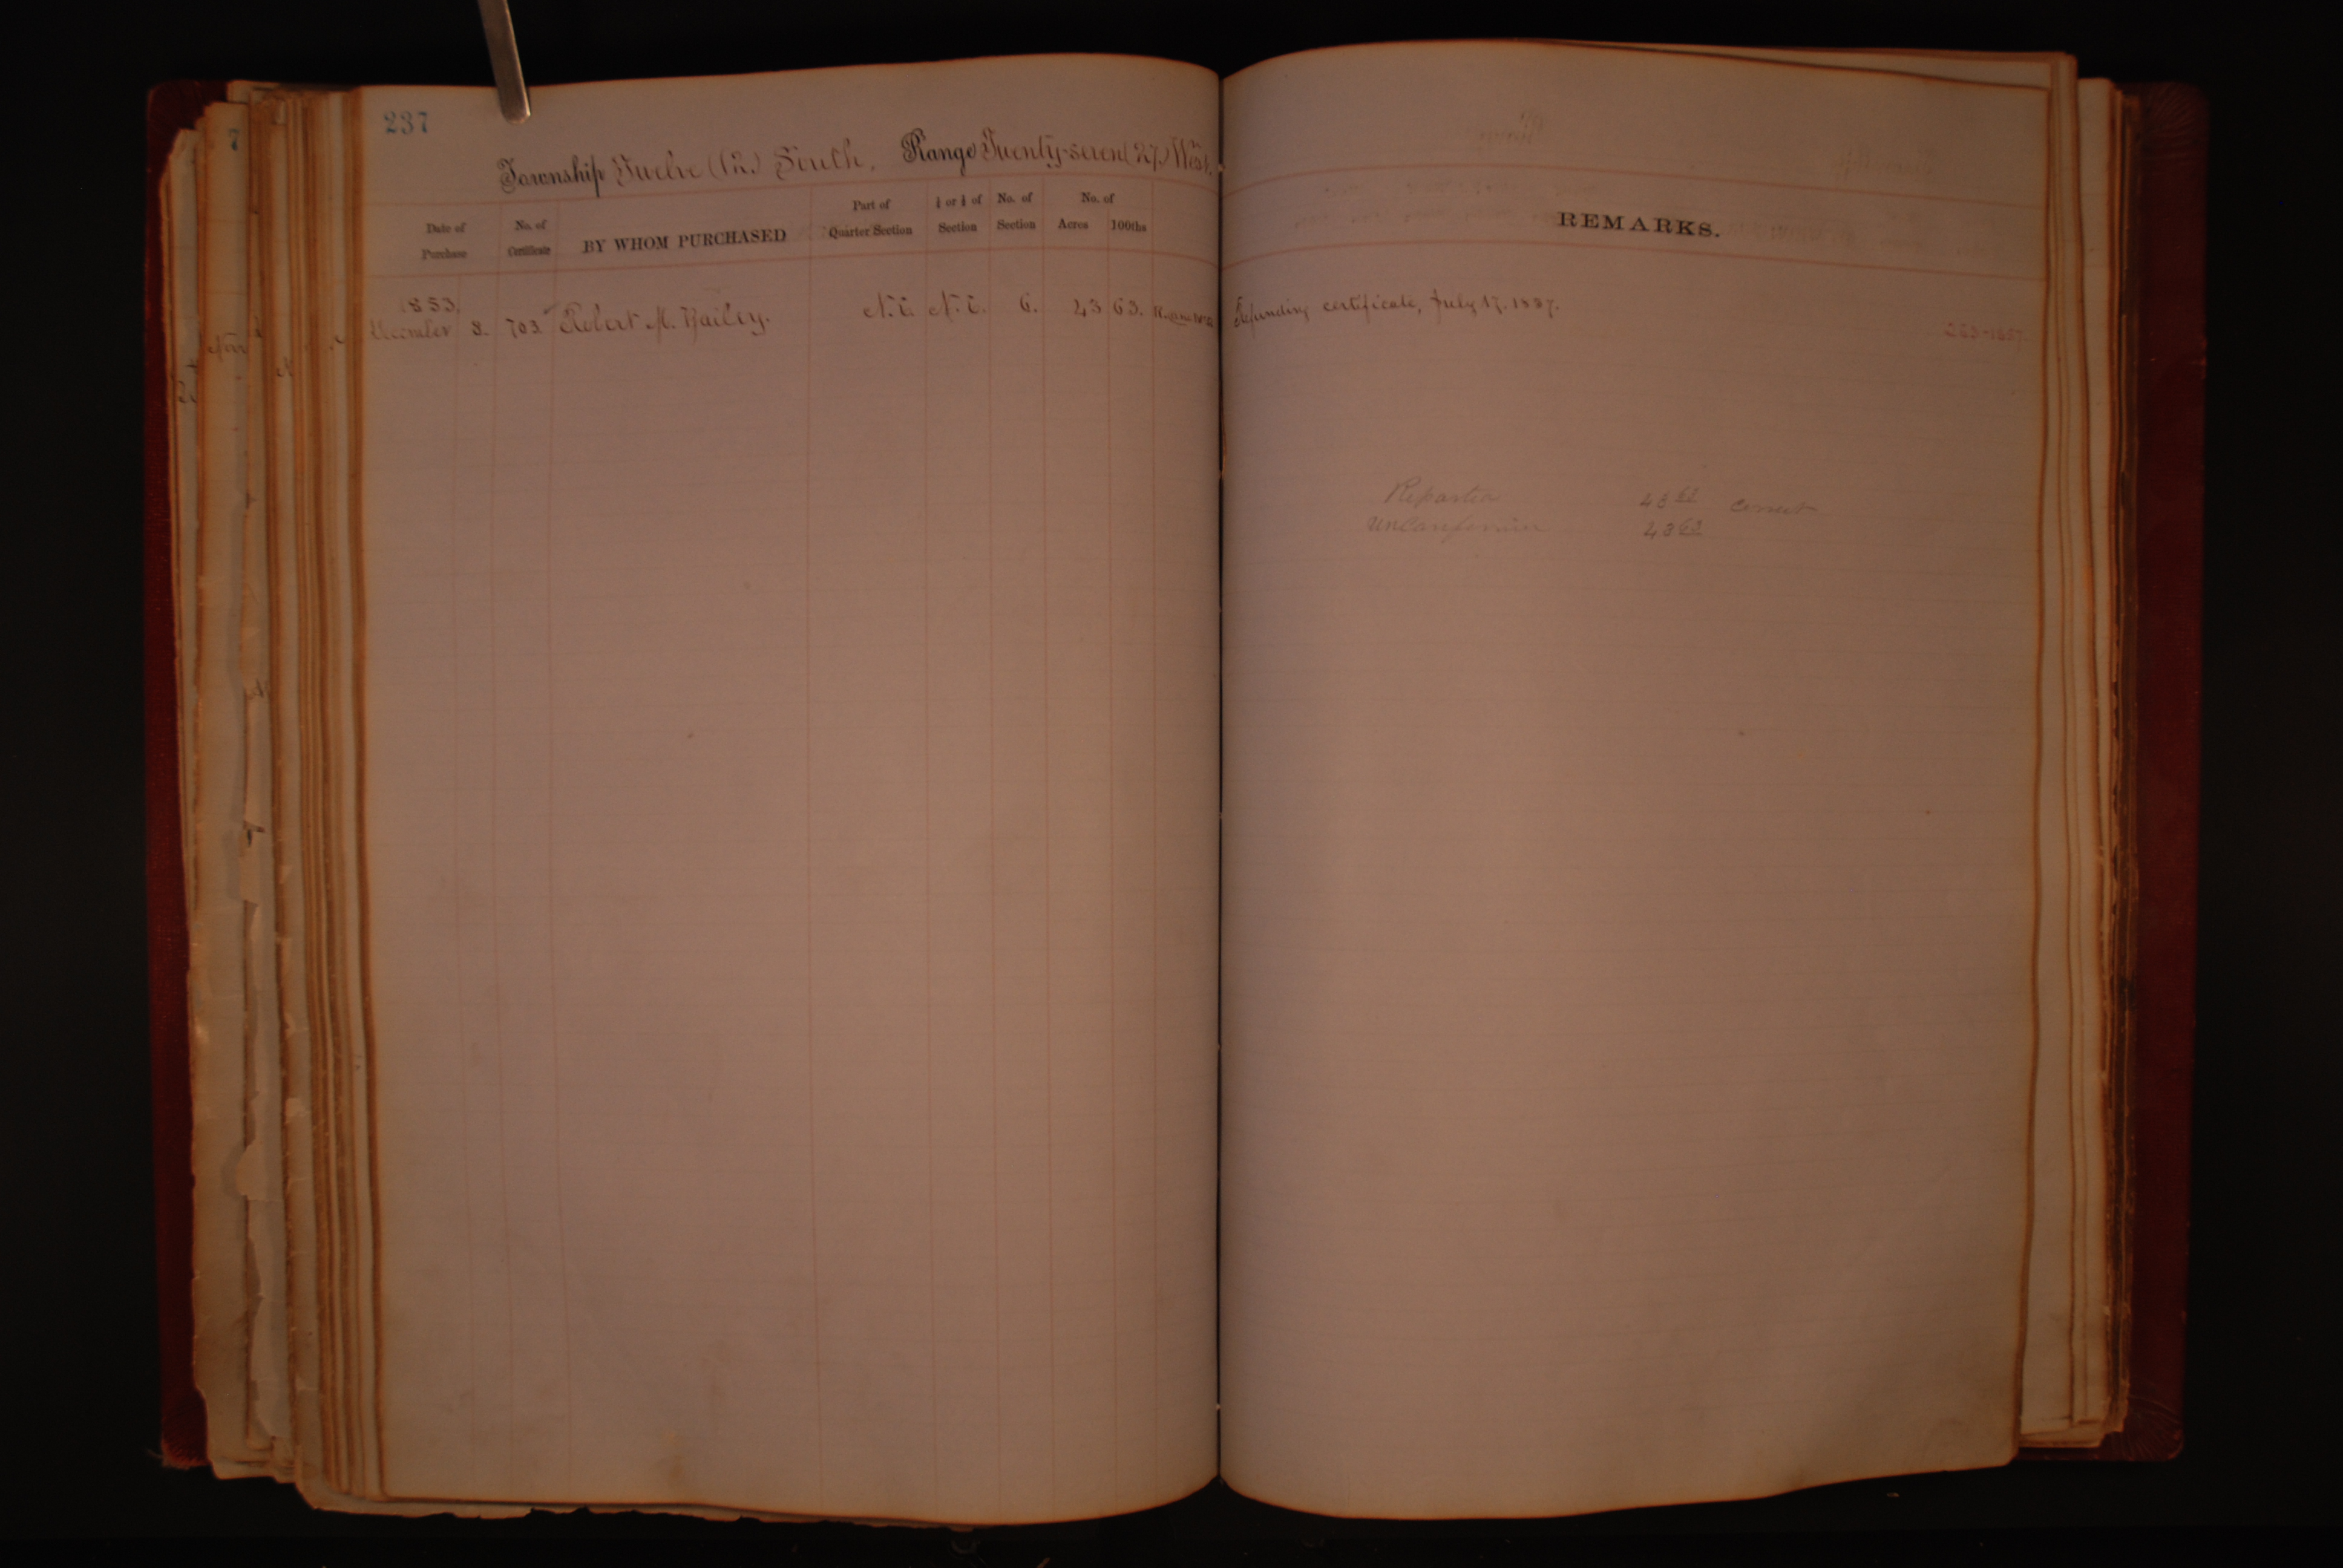 237
Township Twelve (12.) South, Range Twenty-seven (27.) West.
Date of Purchase
No. of Certificate
BY WHOM PURCHASED
Part of Quarter Section
½ or ¼ of Section
No. of Section
No. of
Acres 100ths
REMARKS.
1853.
December 8. 703. Robert M. Bailey. N.E. N.E. 6. 43 63. Refunding certificate, July 17. 1857.
263-1857.
43 63 Correct
Unconfirmed 43 63